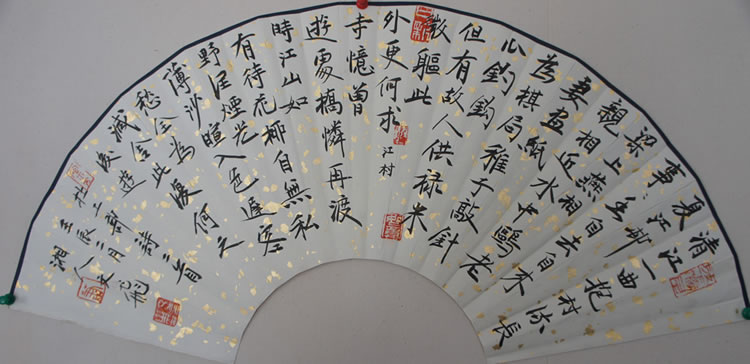 清江一曲抱村流長
夏江邨事々幽自去自来
梁上燕相
親相近水中鷗老
妻畫紙
為棋局稚子敲針
作鈎
但有故人供禄米
微軀此
外更何求 江村
寺憶曾
遊處橋憐再渡
時江山如
有待花柳自無私
野潤煙光
薄沙暄日色遲客
愁全為
減舍此復何之
後遊
杜工部詩二首
壬辰二月
湘人